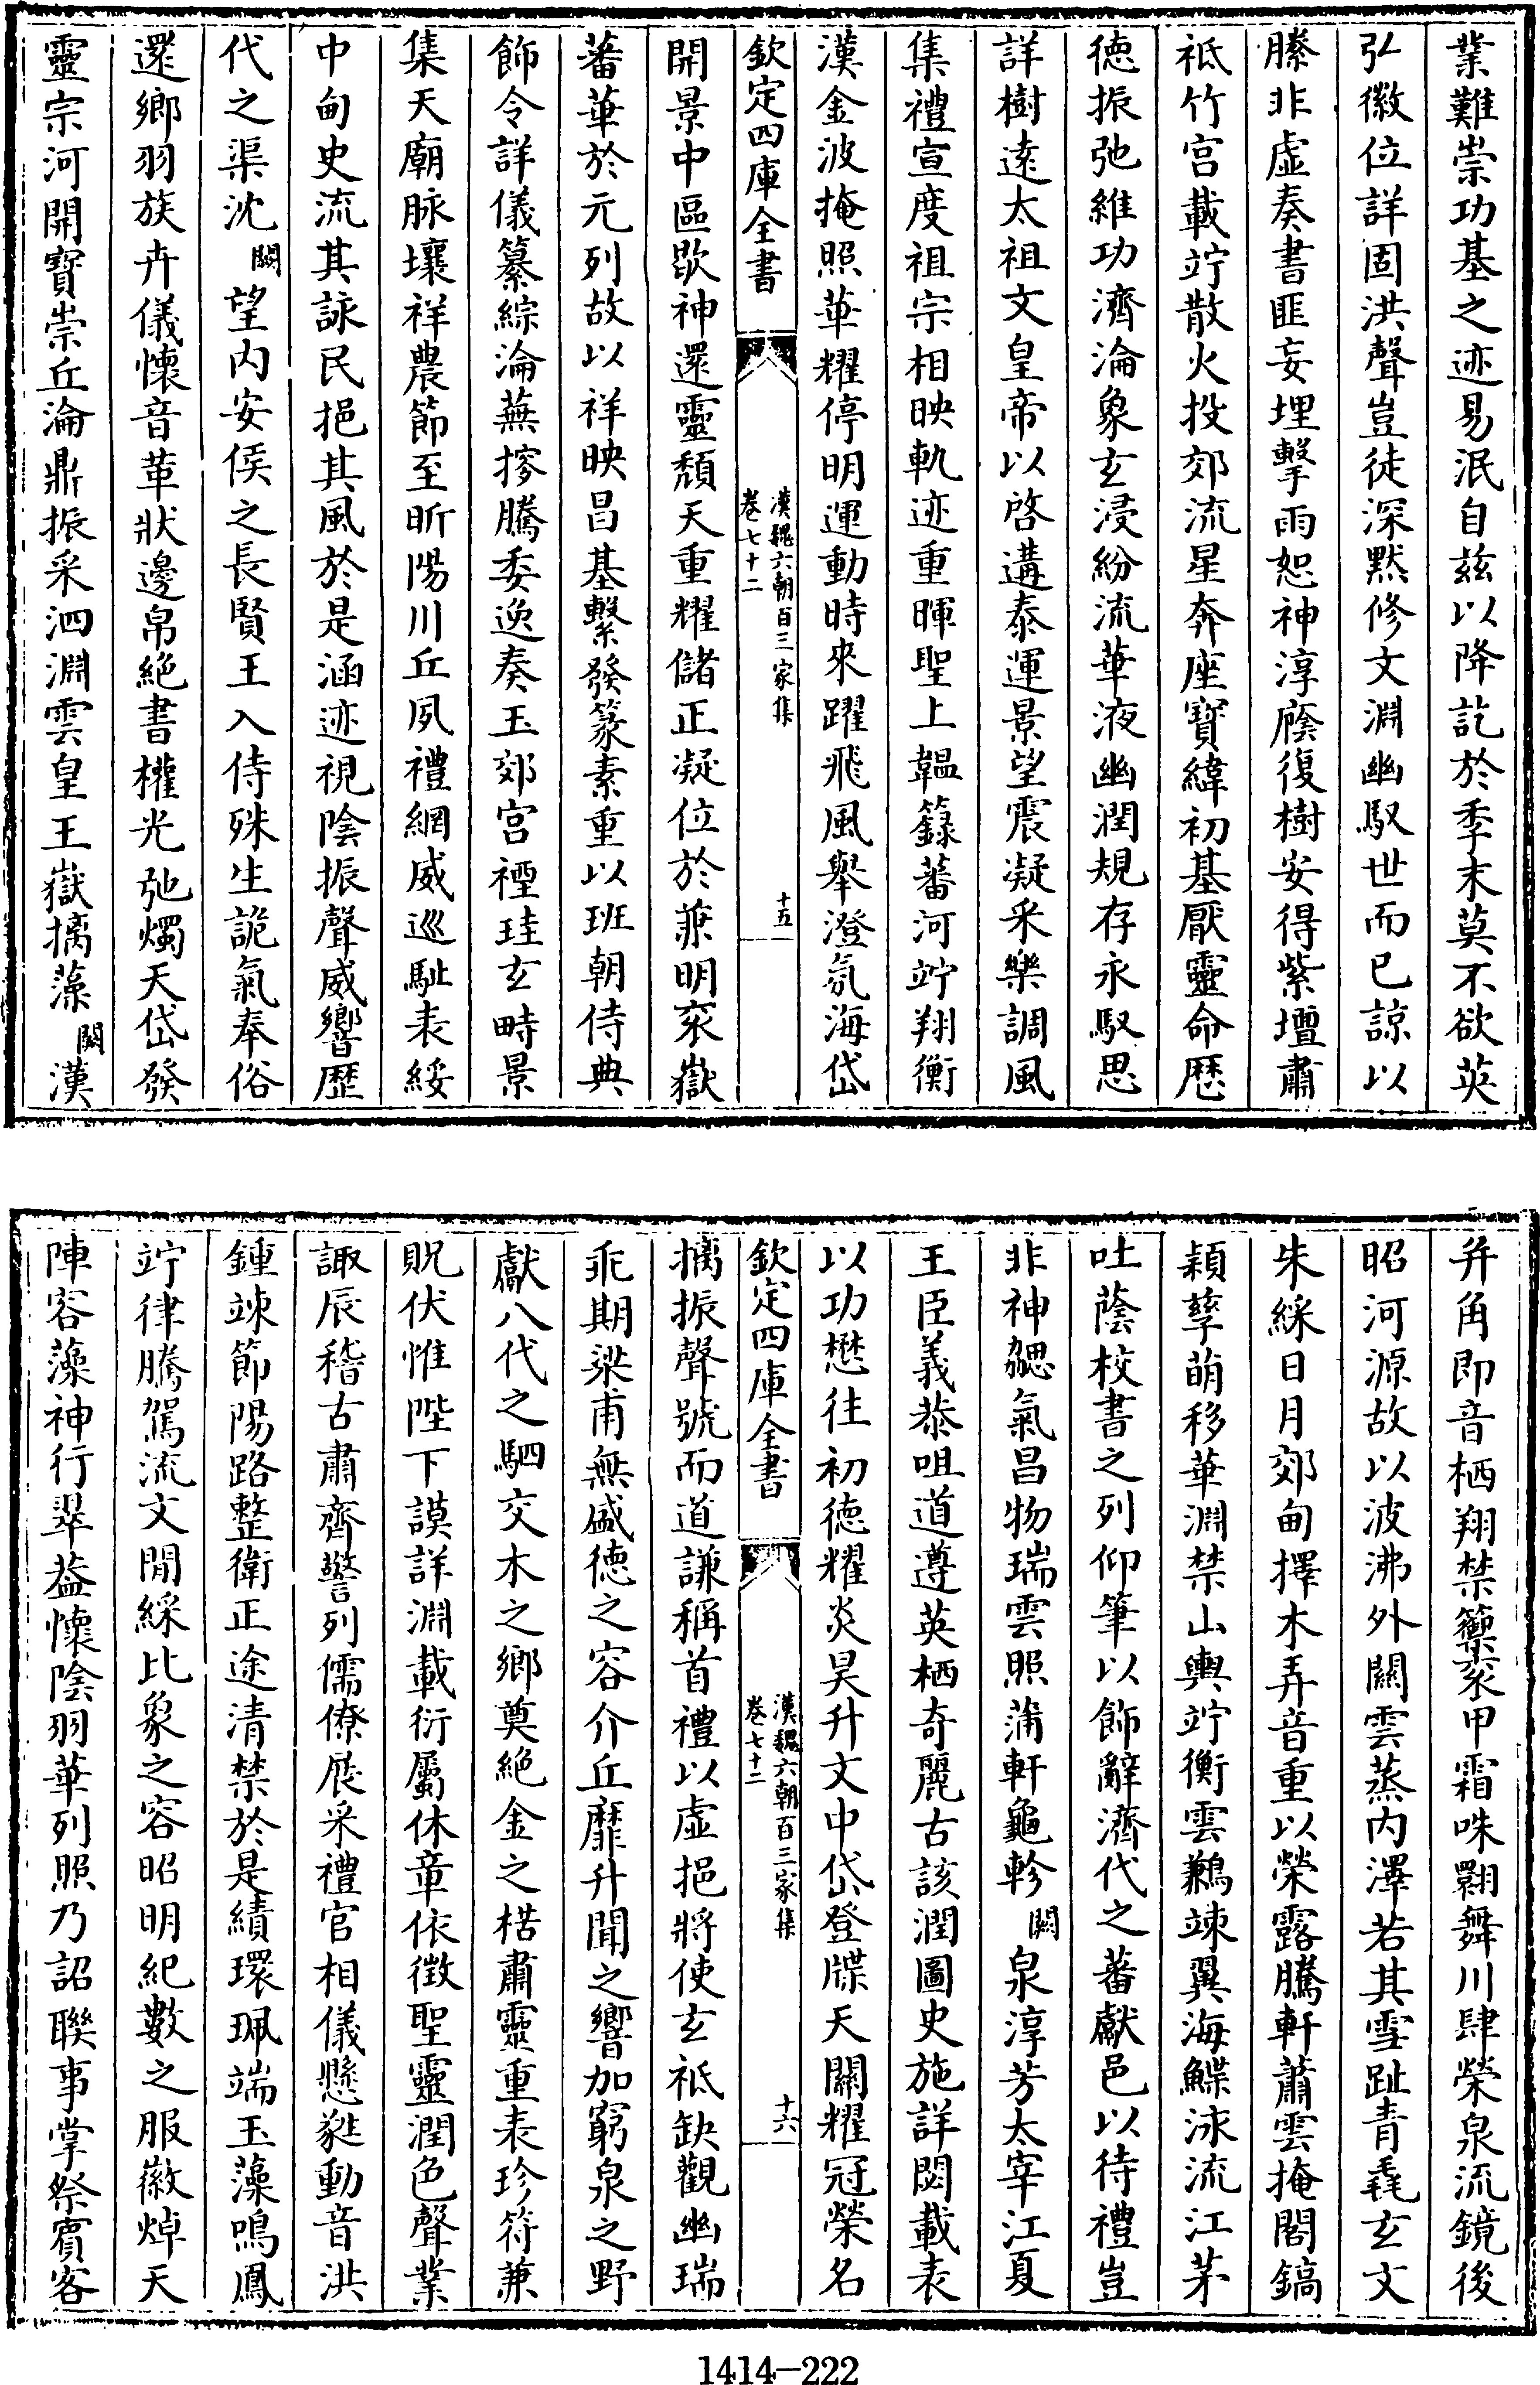 業難崇功基之迹易泯自兹以降訖於季末莫不欲英
弘徽位詳固洪聲豈徒深黙修文淵幽馭世而已諒以
縢非虚奏書匪妄埋擊雨恕神淳廕復樹安得紫壇肅
祗竹宫載竚散火投郊流星奔座寳緯初基厭靈命歴
徳振弛維功濟淪象玄浸紛流華液幽潤規存永馭思
詳樹逺太祖文皇帝以啓遘泰運景望震凝采樂調風
集禮宣度祖宗相映軌迹重暉聖上韞籙蕃河竚翔衡
漢金波掩照華耀停明運動時來躍飛風舉澄氛海岱
欽定四庫全書
漢魏六朝百三家集
卷七十二
十五
開景中區歇神還靈頽天重耀儲正凝位於兼明衮嶽
蕃華於元列故以祥映昌基繫發篆素重以班朝侍典
飾令詳儀纂綜淪蕪搜騰委逸奏玉郊宫禋珪玄畤景
集天廟脉壤祥農節至昕陽川丘夙禮綱威巡駐表綏
中甸史流其詠民挹其風於是涵迹視陰振聲威響歴
代之渠沈闕望内安侯之長賢王入侍殊生詭氣奉俗
還鄉羽族卉儀懷音革狀邊帛絶書權光弛燭天岱發
靈宗河開寳崇丘淪鼎振采泗淵雲皇王嶽摛藻闕漢
并角即音栖翔禁籞衮甲霜咮翾舞川肆榮泉流鏡後
昭河源故以波沸外關雲蒸内澤若其雪趾青毳玄文
朱綵日月郊甸擇木弄音重以榮露騰軒蕭雲掩閣鎬
穎孳萌移華淵禁山輿竚衡雲鶼竦翼海鰈泳流江茅
吐蔭校書之列仰筆以飾辭濟代之蕃獻邑以待禮豈
非神勰氣昌物瑞雲照蒲軒龜軫闕泉淳芳太宰江夏
王臣義恭咀道遵英栖奇麗古該潤圖史施詳閟載表
以功懋往初徳耀炎昊升文中岱登牒天闗耀冠榮名
欽定四庫全書
漢魏六朝百三家集
卷七十二
十六
摛振聲號而道謙稱首禮以虚挹將使玄祗缺觀幽瑞
乖期梁甫無盛徳之容介丘靡升聞之響加窮泉之野
獻八代之駟交木之鄉奠絶金之楛肅靈重表珍符兼
貺伏惟陛下謨詳淵載衍屬休章依徵聖靈潤色聲業
諏辰稽古肅齊警列儒僚展采禮官相儀懸蕤動音洪
鍾竦節陽路整衛正途清禁於是績環珮端玉藻鳴鳳
竚律騰駕流文閒綵比象之容昭明紀數之服徽焯天
陣容藻神行翠葢懷陰羽華列照乃詔聯事掌祭賓客
1414—222